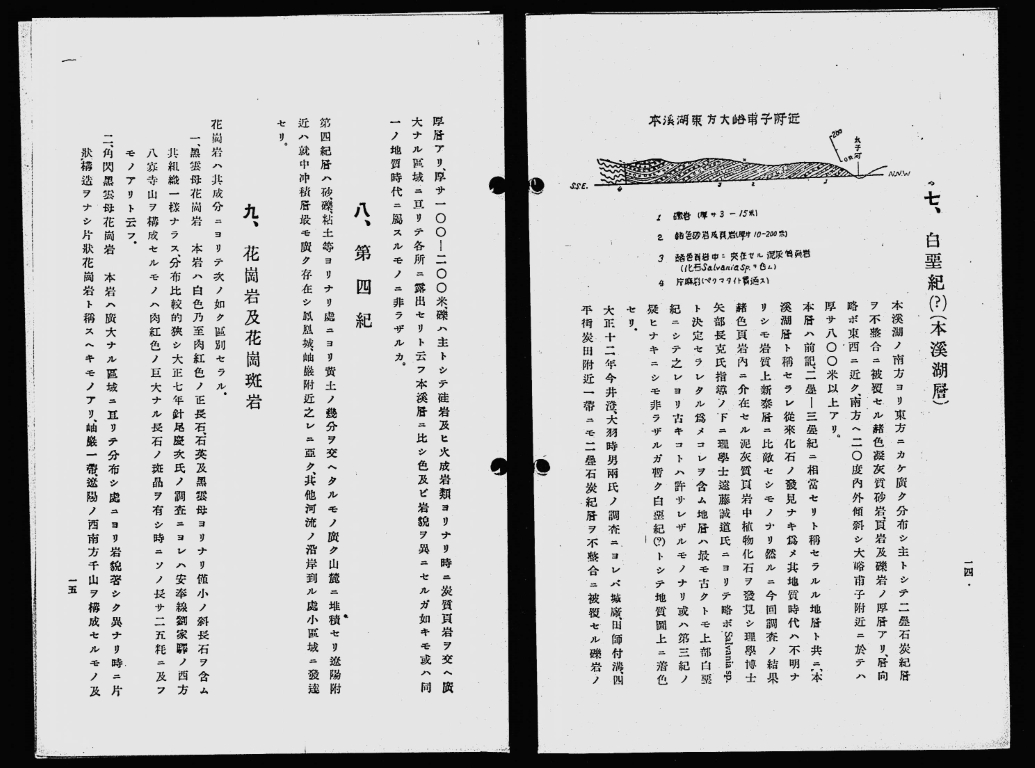 七、白堊紀(?)(本溪湖層)
本溪湖ノ南方ヨリ東方ニカケ廣ク分布シ主トシテ二疊石炭紀層
ヲ不整合ニ被覆セル赭色凝灰質砂岩頁岩及礫岩ノ厚層アリ、層向
略ボ東西ニ近ク、南方ヘ二〇度內外傾斜シ大峪甫子附近ニ於テハ
厚サ八〇〇米以上アリ。
本層ハ前記、二疊—三疊紀ニ相當セリト稱セラルル地層ト共ニ、本
溪湖層ト稱セラレ從來化石ノ發見ナキ爲メ其地質時代ハ不明ナ
リシモ岩質上新泰層ニ比敵セシモノナリ然ルニ今回調査ノ結果
赭色頁岩內ニ介在セル泥灰質頁岩中植物化石ヲ發見シ理學博士
矢部長克氏指導ノ下ニ理學士遠藤誠道氏ニヨリテ略ボ Salvania sp.
ト決定セラレタル爲メコレヲ含ム地層ハ最モ古クトモ上部白堊
紀ニシテ之レヨリ古キコトハ許サレザルモノナリ或ハ第三紀ノ
疑ヒナキニシモ非ラザルガ暫ク白堊紀(?)トシテ地質圖上ニ着色
セリ。
大正十二年今井澄、大羽時男兩氏ノ調査ニヨレバ城廠、田師付溝四
平街炭田附近一帶ニモ二疊石炭紀層ヲ不整合ニ被覆セル礫岩ノ
本溪湖東方大峪甫子附近
200
0米
太子河
SSE.
N.N.W
4
3
2
3
1 礫岩 (厚サ3-15米)
2 赭色砂岩及頁岩(厚サ10-200米)
3 赭色頁岩中ニ夾在セル泥灰質頁岩
(化石Salvania Sp.
4 片麻岩(ペグマタイト貫通ス)
一四
厚層アリ、厚サ一〇〇—二〇〇米、礫ハ主トシテ硅岩及ヒ火成岩類ヨリナリ時ニ炭質頁岩ヲ交ヘ廣
大ナル區域ニ亘リテ各所ニ露出セリト云フ本溪層ニ比シ色及ビ岩貌ヲ異ニセルガ如キモ或ハ同
一ノ地質時代ニ屬スルモノニ非ラザルカ。
八、第四紀
第四紀層ハ砂、礫、粘土等ヨリナリ處ニヨリ黃土ノ幾分ヲ交ヘタルモノ廣ク山麓ニ堆積セリ遼陽附
近ハ就中冲積層最モ廣ク存在シ鳳凰城、岫巖附近之レニ亞ク、其他河流ノ沿岸到ル處小區域ニ發達
セリ。
九、花崗岩及花崗斑岩
花崗岩ハ其成分ニヨリテ次ノ如ク區別セラル。
一、黑雲母花崗岩 本岩ハ白色乃至肉紅色ノ正長石、石英及黑雲母ヨリナリ僅小ノ斜長石ヲ含ム
其組織一樣ナラス、分布比較的狹シ大正七年針尾慶次氏ノ調査ニヨレハ安奉線劉家驛ノ西方
八寡寺山ヲ構成セルモノハ肉紅色ノ巨大ナル長石ノ斑晶ヲ有シ時ニソノ長サ二五粍ニ及フ
モノアリト云フ。
二、角閃黑雲母花崗岩 本岩ハ廣大ナル區域ニ亘リテ分布シ處ニヨリ岩貌著シク異ナリ時ニ片
狀構造ヲナシ片狀花崗岩ト稱スヘキモノアリ、岫巖一帶、遼陽ノ西南方千山ヲ構成セルモノ及
一五